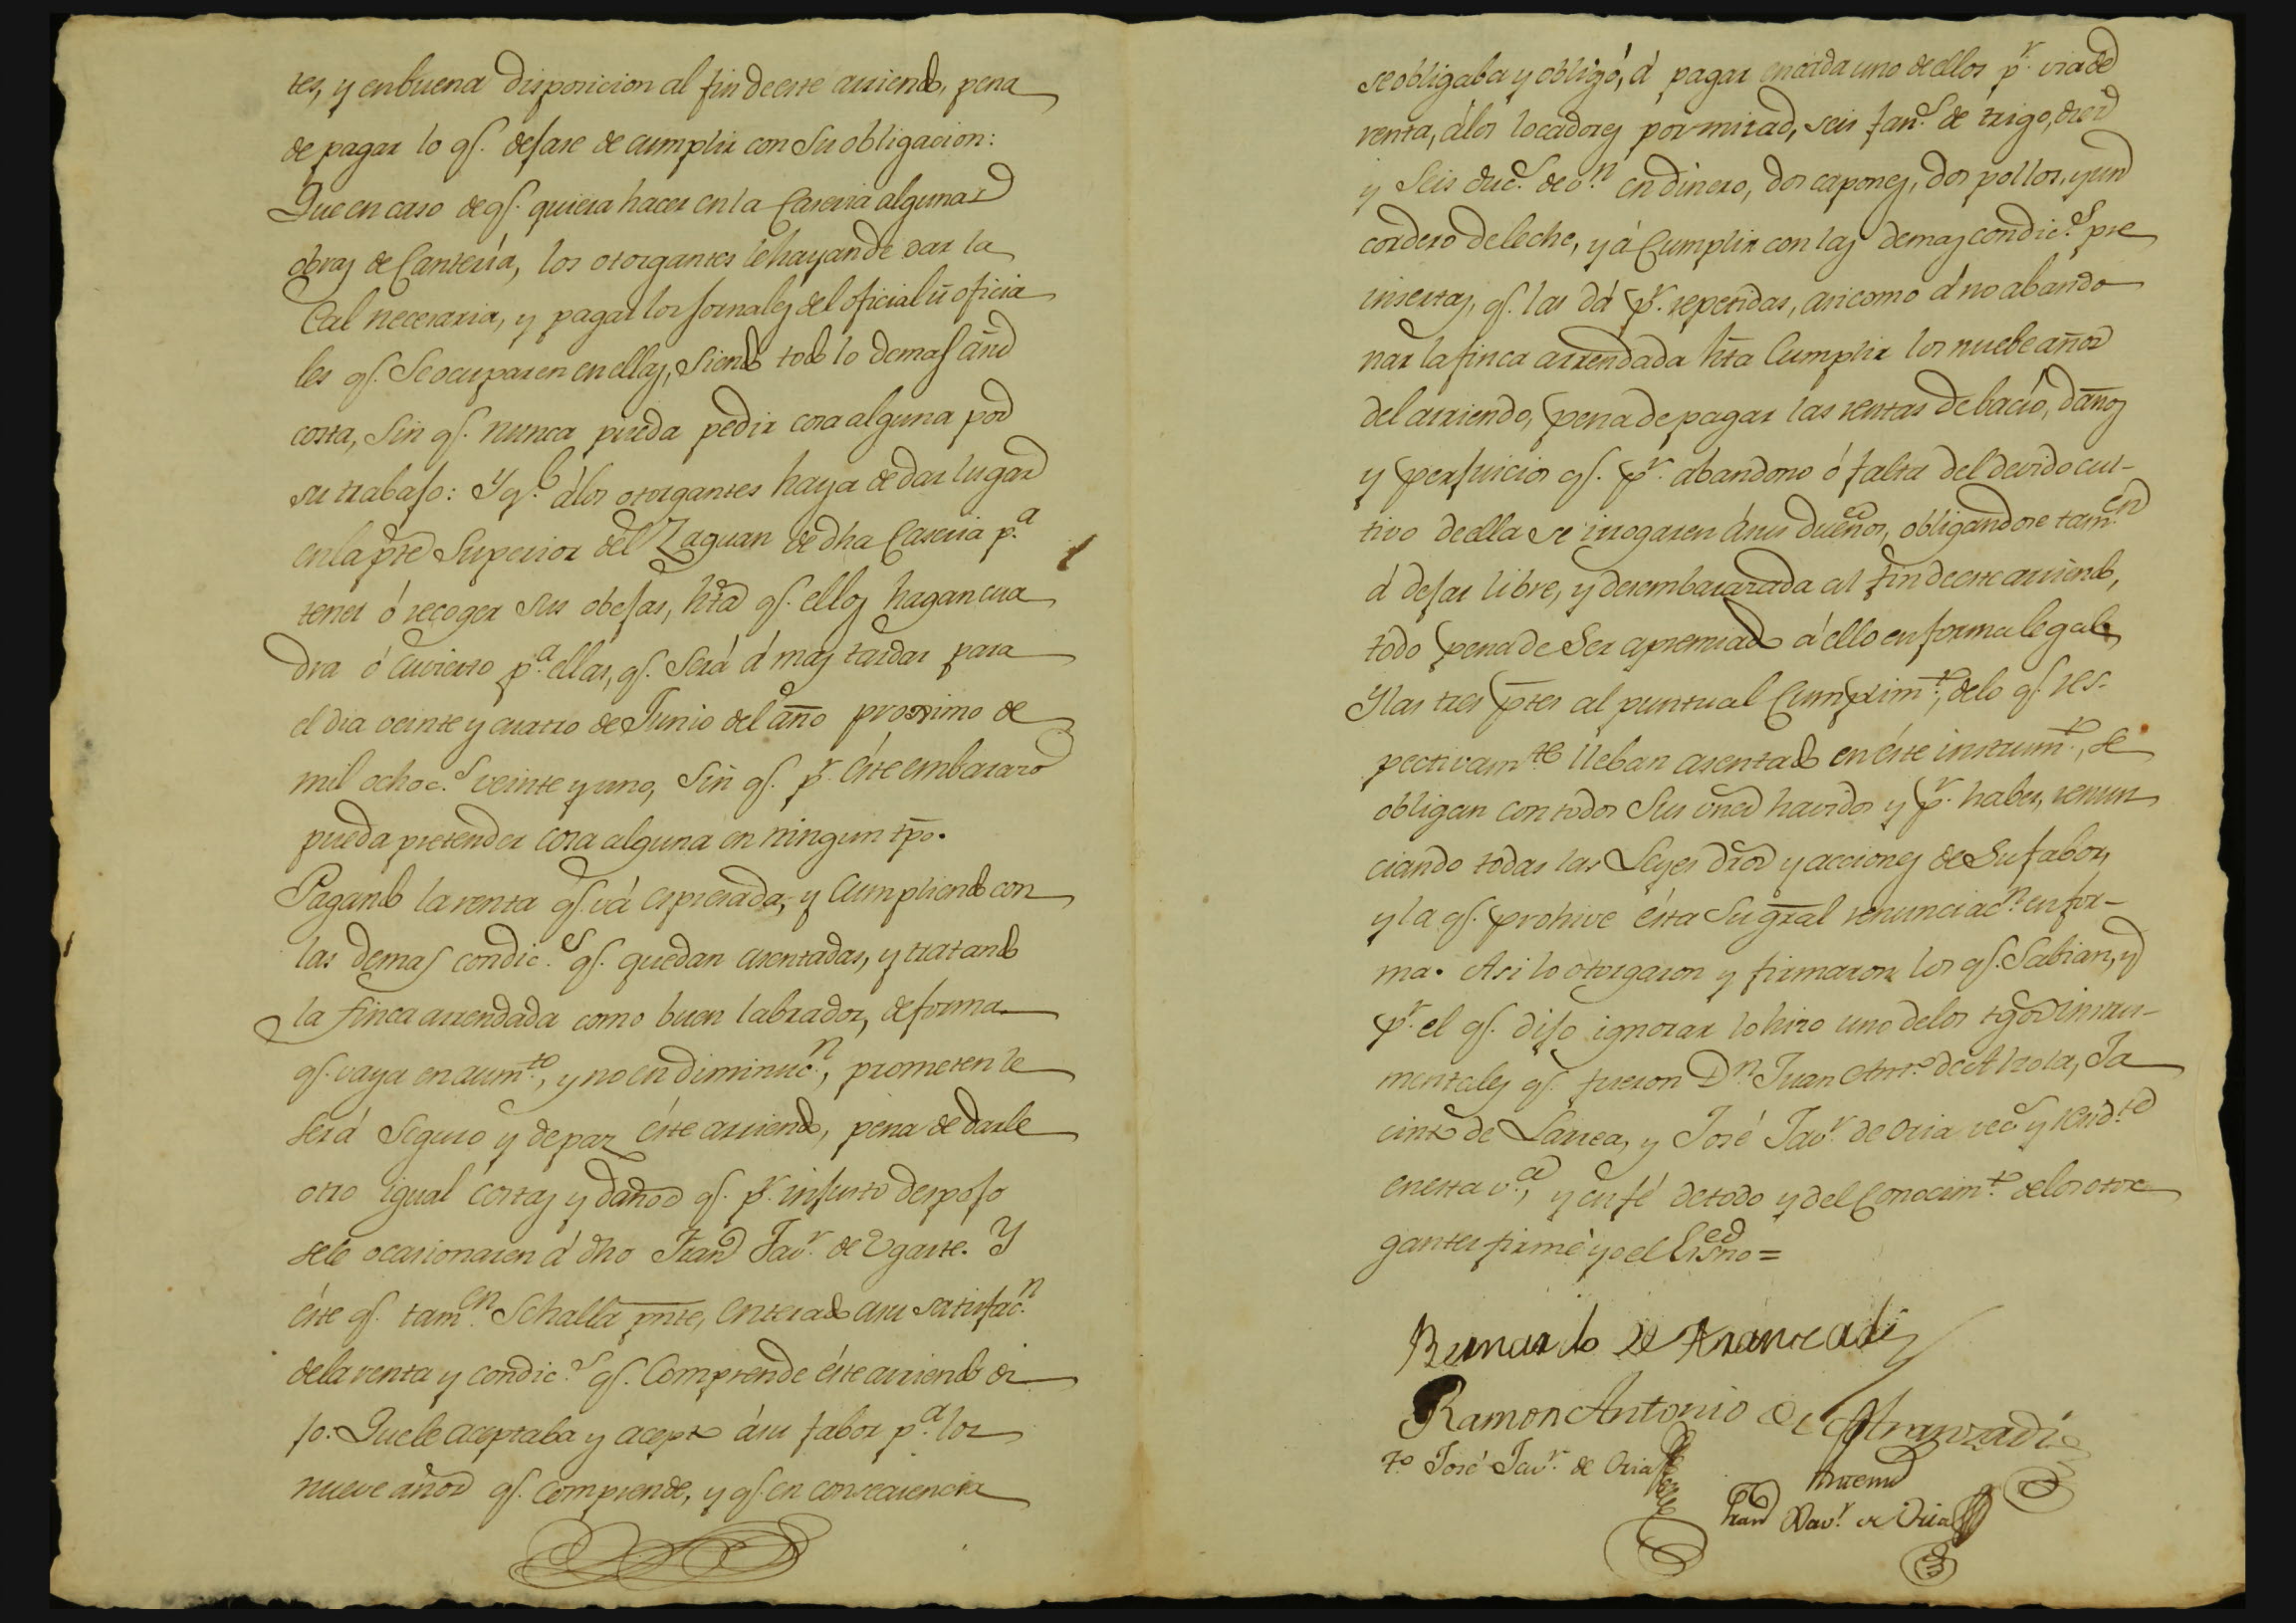 tes, y en buena disposicion al fin de este arriendo, pena
de pagar lo q.e dejare de cumplir con su obligacion:
Que en caso de q.e quiera hacer en la Caseria algunas
obras de Canteria, los otorgantes le hayan de dar la
Cal necesaria, y pagar los jornales del oficial ú oficia
les q.e se ocuparen en ellas, siendo todo lo demas á su
costa, sin q.e nunca pueda pedir cosa alguna por
su trabajo: Y q.e á los otorgantes haya de dar lugar
en la pte superior del Zaguan de dha Caseria p.a
tener ó recoger sus obejas, hta q.e ellos hagan cua
dra ó cuvierto p.a ellas, q.e será á mas tardar para
el dia veinte y cuatro de Junio del año proximo de
mil ochoc.s veinte y uno, sin q.e p.r este embarazo
pueda pretender cosa alguna en ningun tpo.
Pagando la renta q.e vá espresada, y cumpliendo con
las demas condic.s q.e quedan asentadas, y tratando
la finca arrendada como buen labrador, de forma
q.e vaya en aum.to, y no en diminuc.n, prometen le
será seguro y de paz éste arriendo, pena de darle
otro igual costas y daños q.e p.r injusto despojo
sele ocasionaren á dho Fran.co Jav.r de Ugarte. Y
éste q.e tam.en se halla pnte, enterado á su satisfac.n
de la renta y condic.s q.e comprende éste arriendo di
jo: Que le aceptaba y aceptó á su fabor p.a los
nueve años q.e comprende, y q.e en consecuencia
se obligaba y obligó, á pagar en cada uno de ellos p.r via de
renta, á los locadores por mitad, seis fan.s de trigo, diez
y seis duc.s de v.n en dinero, dos capones, dos pollos, y un
cordero de leche, y á cumplir con las demas condic.s pre
insertas, q.e las dá p.r repetidas, asi como á no abando
nar la finca arrendada hta cumplir los nuebe años
del arriendo, pena de pagar las rentas de bacio, daños
y perjuicios q.e p.r abandono ó falta del devido cul-
tivo de ella se irrogaren á sus dueños, obligandose tam.en
á dejar libre, y desembarazada al fin de este arriendo,
todo pena de ser apremiado á ello en forma legal.
Y las tres ptes al puntual cumplim.to, de lo q.e res-
pectivam.te lleban asentado en éste instrum.to, se
obligan con todos sus vnes havidos y p.r haber, renun
ciando todas las Leyes dros y acciones de su fabor,
y la q.e prohive ésta su gral renunciac.n en for-
ma. Asi lo otorgaron y firmaron los q.e sabian, y
p.r el q.e dijo ignorar lo hizo uno de los tgos instru-
mentales q.e fueron D.n Juan Ant.o de Alzola, Ja
cinto de Larrea, y José Jav.r de Oria vec.s y resid.tes
en esta v.a, y en fé de todo y del conocim.to de los otor
gantes firmé yo el Esno =
Bernardo de Aranzadi
Ramon Antonio de Aranzadi
t.o José Jav.r de Oria
Ante mi
Fran.co Xav.r de Oria